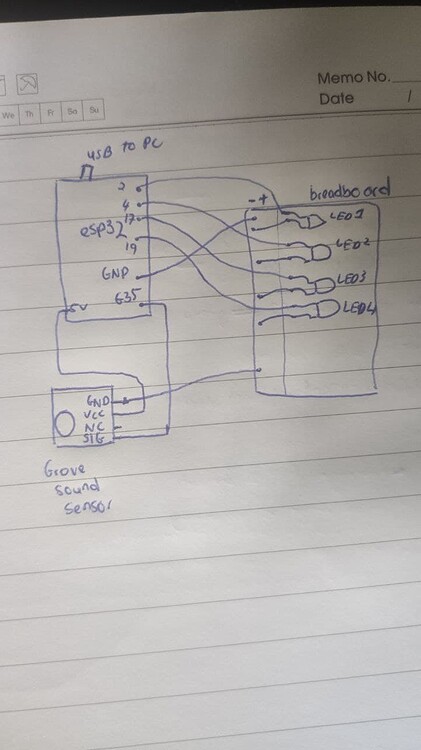 Memo No.
Date /
We Th Fr Sa Su
USB to PC
2
4
17
esp32
19
GND
G35
5V
- +
breadboard
LED1
LED2
LED3
LED4
GND
VCC
NC
SIG
Grove
sound
sensor